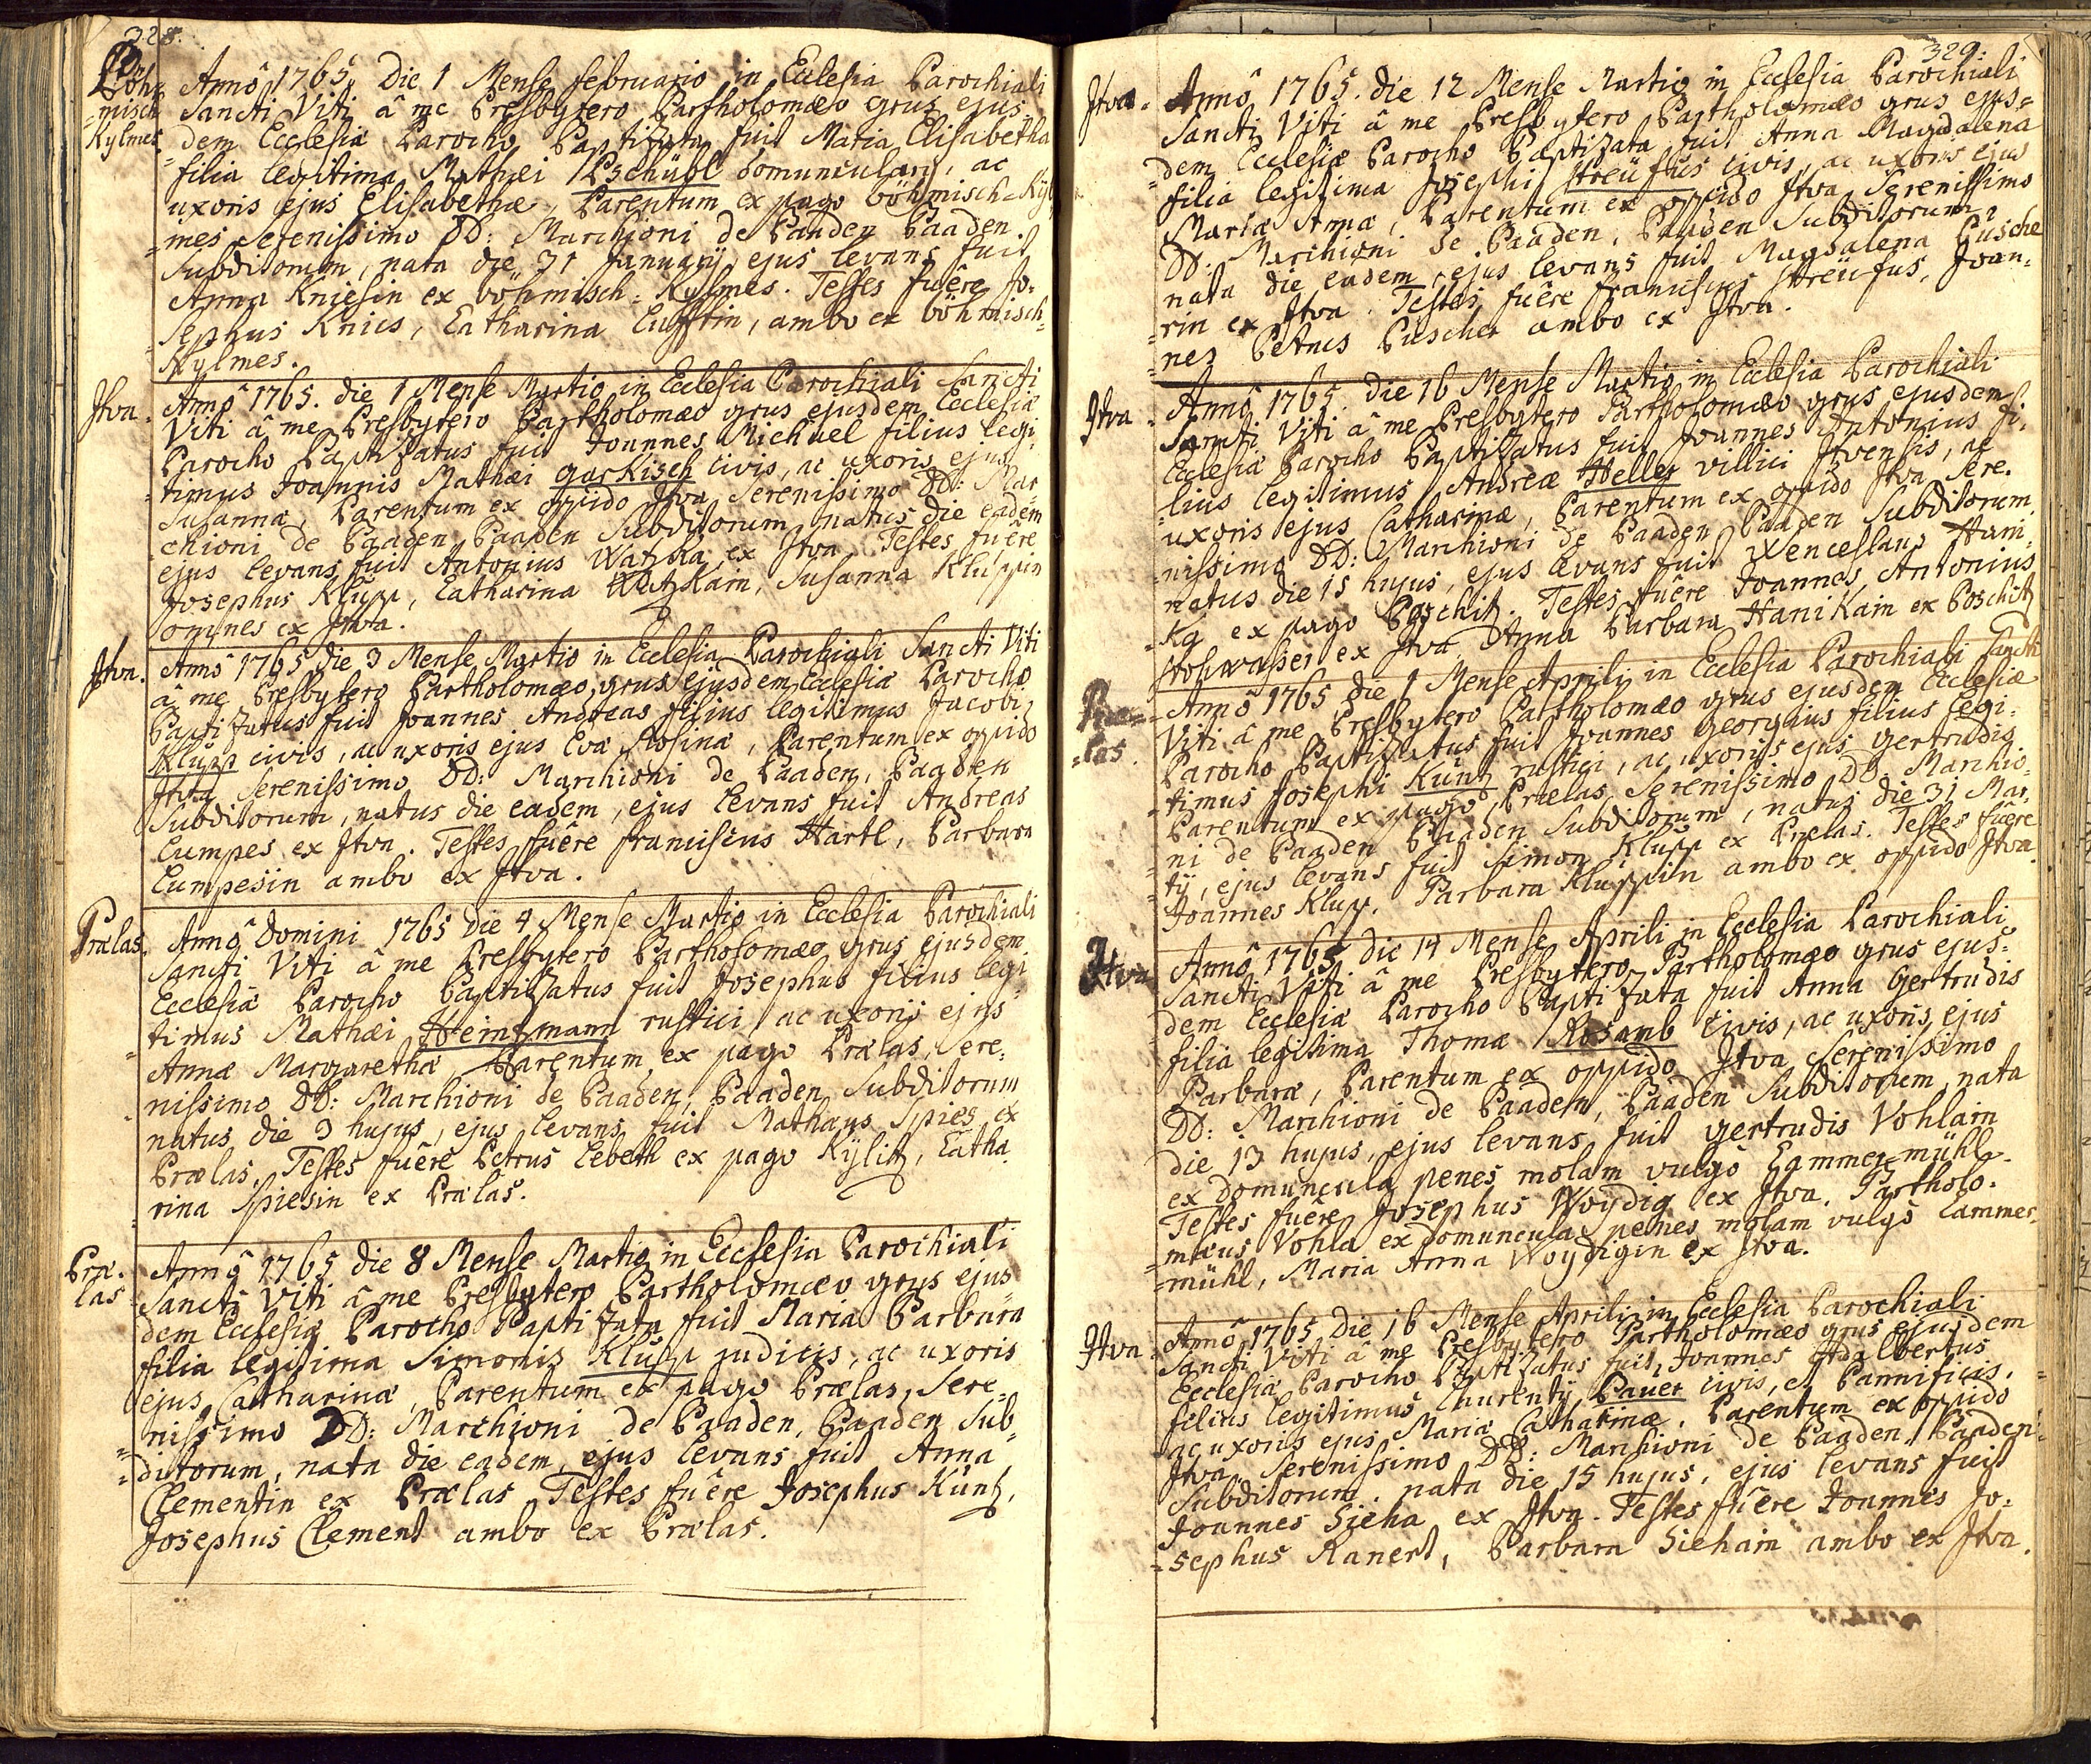 328.
Böh-
misch
Kylmes
Annô 1765 Die 1 Mense februario in Ecclesia Parochiali
Sancti Viti â me Presbytero Bartholomæo grus ejus-
dem Ecclesiæ Parocho Baptizata fuit Maria Elisabetha
filia legitima Mathæi Pschübl domuncularij, ac
uxoris ejus Elisabethæ, Parentum ex pago böhmisch-Kyl
mes Serenissimo DD: Marchioni de Baaden Baaden
Subditorum, nata die 31 January, ejus levans fuit
Anna Kniesin ex böhmisch-Kylmes. Testes fuêre Jo-
sephus Knies, Catharina Lufftin, ambo ex böhmisch-
Kylmes.
Itva.
Annô 1765. die 1 Mense Martio in Ecclesia Parochiali Sancti
Viti â me Presbytero Bartholomæo grus ejusdem Ecclesiæ
Parocho Baptizatus fuit Joannes Michael filius legi-
timus Joannis Mathæi garkisch civis, ac uxoris ejus
Susannæ, Parentum ex oppido Itva Serenissimo DD: Mar
chioni de Baaden Baaden Subditorum natus die eadem
ejus levans fuit Antonius Watzka ex Itva Testes fuêre
Josephus Klupp, Catharina Watzkain, Susanna Kluppin
omnes ex Itva.
Itva.
Annô 1765 die 3 Mense Martio in Ecclesia Parochiali Sancti Viti
â me Presbytero Bartholomæo grus ejusdem Ecclesiæ Parocho
Baptizatus fuit Joannes Andreas filius legitimus Jacobi
Klupp civis, ac uxoris ejus Evæ Rosinæ, Parentum ex oppido
Itva Serenissimo DD: Marchioni de Baaden, Baaden
Subditorum, natus die eadem, ejus levans fuit Andreas
Lumpes ex Itva. Testes fuêre franciscus Hartl, Barbara
Lumpesin ambo ex Itva.
Prælas.
Annô Domini 1765 Die 4 Mense Martio in Ecclesia Parochiali
Sancti Viti â me Presbytero Bartholomæo grus ejusdem
Ecclesiæ Parocho Baptizatus fuit Josephus filius legi-
timus Mathæi Heintzmann rustici, ac uxoris ejus
Annæ Margarethæ, Parentum ex pago Prælas, Sere-
nissimo DD: Marchioni de Baaden, Baaden Subditorum
natus die 3 hujus, ejus levans fuit Mathæus Spies ex
Prælas. Testes fuêre Petrus Lebeth ex pago Kylitz, Catha-
rina Spiesin ex Prælas.
Præ-
las
Annô 1765 die 8 Mense Martio in Ecclesia Parochiali
Sancti Viti â me Presbytero Bartholomæo grus ejus-
dem Ecclesiæ Parocho Baptizata fuit Maria Barbara
filia legitima Simonis Klupp judicis, ac uxoris
ejus Catharinæ, Parentum ex pago Prælas, Sere-
nissimo DD: Marchioni de Baaden, Baaden Sub-
ditorum, nata die eadem, ejus levans fuit Anna
Clementin ex Prælas Testes fuêre Josephus Küntz,
Josephus Clement ambo ex Prælas.
329.
Itva.
Annô 1765. die 12 Mense Martio in Ecclesia Parochiali
Sancti Viti â me Presbytero Bartholomæo grus ejus-
dem Ecclesiæ Parocho Baptizata fuit Anna Magdalena
filia legitima Josephi Streüfus civis, ac uxoris ejus
Mariæ Annæ, Parentum ex oppido Itva Serenissimo
DD: Marchioni de Baaden, Baaden Subditorum,
nata die eadem, ejus levans fuit Magdalena Püsche
rin ex Itva. Testes fuêre franciscus Streüfus, Joan-
nes Petrus Püscher ambo ex Itva.
Itva
Annô 1765. die 16 Mense Martio in Ecclesia Parochiali
Sancti Viti â me Presbytero Bartholomæo grus ejusdem
Ecclesiæ Parocho Baptizatus fuit Joannes Antonius fi-
lius legitimus Andreæ Heller villici Itvensis, ac
uxoris ejus Catharinæ, Parentum ex oppido Itva Sere-
nissimo DD: Marchioni de Baaden Baaden Subditorum
natus die 15 hujus, ejus levans fuit Wenceslaus Hani-
Ka ex pago Poschitz. Testes fuêre Joannes Antonius
Rohwasser ex Itva Anna Barbara Hanikain ex Poschitz
Præ-
las
Annô 1765 die 1 Mense Aprili in Ecclesia Parochiali Sancti
Viti â me Presbytero Bartholomæo grus ejusdem Ecclesiæ
Parocho Baptizatus fuit Joannes Georgius filius legi-
timus Josephi Küntz rustici, ac uxoris ejus gertrudis
Parentum ex pago Prælas Serenissimo DD. Marchio-
ni de Baaden Baaden Subditorum, natus die 31 Mar-
tij, ejus levans fuit Simon Klupp ex Prælas. Testes fuêre
Joannes Klupp, Barbara Kluppin ambo ex oppido Itva
Itva
Annô 1765 Die 14 Mense Aprili in Ecclesia Parochiali
Sancti Viti â me Presbytero Bartholomæo grus ejus-
dem Ecclesiæ Parocho Baptizata fuit Anna Gertrudis
filia legitima Thomæ Rosamb civis, ac uxoris ejus
Barbaræ, Parentum ex oppido Itva Serenissimo
DD: Marchioni de Baaden, Baaden Subditorum nata
die 13 hujus, ejus levans fuit gertrudis Vohlain
ex domuncula penes molam vulgô Hammer-mühl.
Testes fuêre Josephus Woydig ex Itva. Bartholo-
mæus Vohla ex domuncula penes molam vulgô Hammer-
mühl, Maria Anna Woydigin ex Itva.
Itva
Annô 1765 Die 16 Mense Aprili in Ecclesia Parochiali
Sancti Viti â me Presbytero Bartholomæo grus ejusdem
Ecclesiæ Parocho Baptizatus fuit, Joannes Adalbertus
filius legitimus Laurentij Pauer civis, et Pannificis,
ac uxoris ejus Mariæ Catharinæ. Parentum ex oppido
Itva Serenissimo DD: Marchioni de Baaden, Baaden
Subditorum, nata die 15 hujus, ejus levans fuit
Joannes Sieha ex Itva. Testes fuêre Joannes Jo-
sephus Ranert, Barbara Siehain ambo ex Itva.